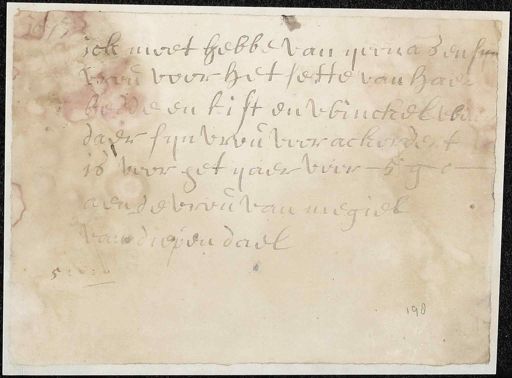 ick moet hebbe van
vrou voor het sette van haer
bedde en kist en
daer syn vrou voor ackordert
is voor het yaer voor 5 g
aen de vrou van megiel
van diepen dael
5
198